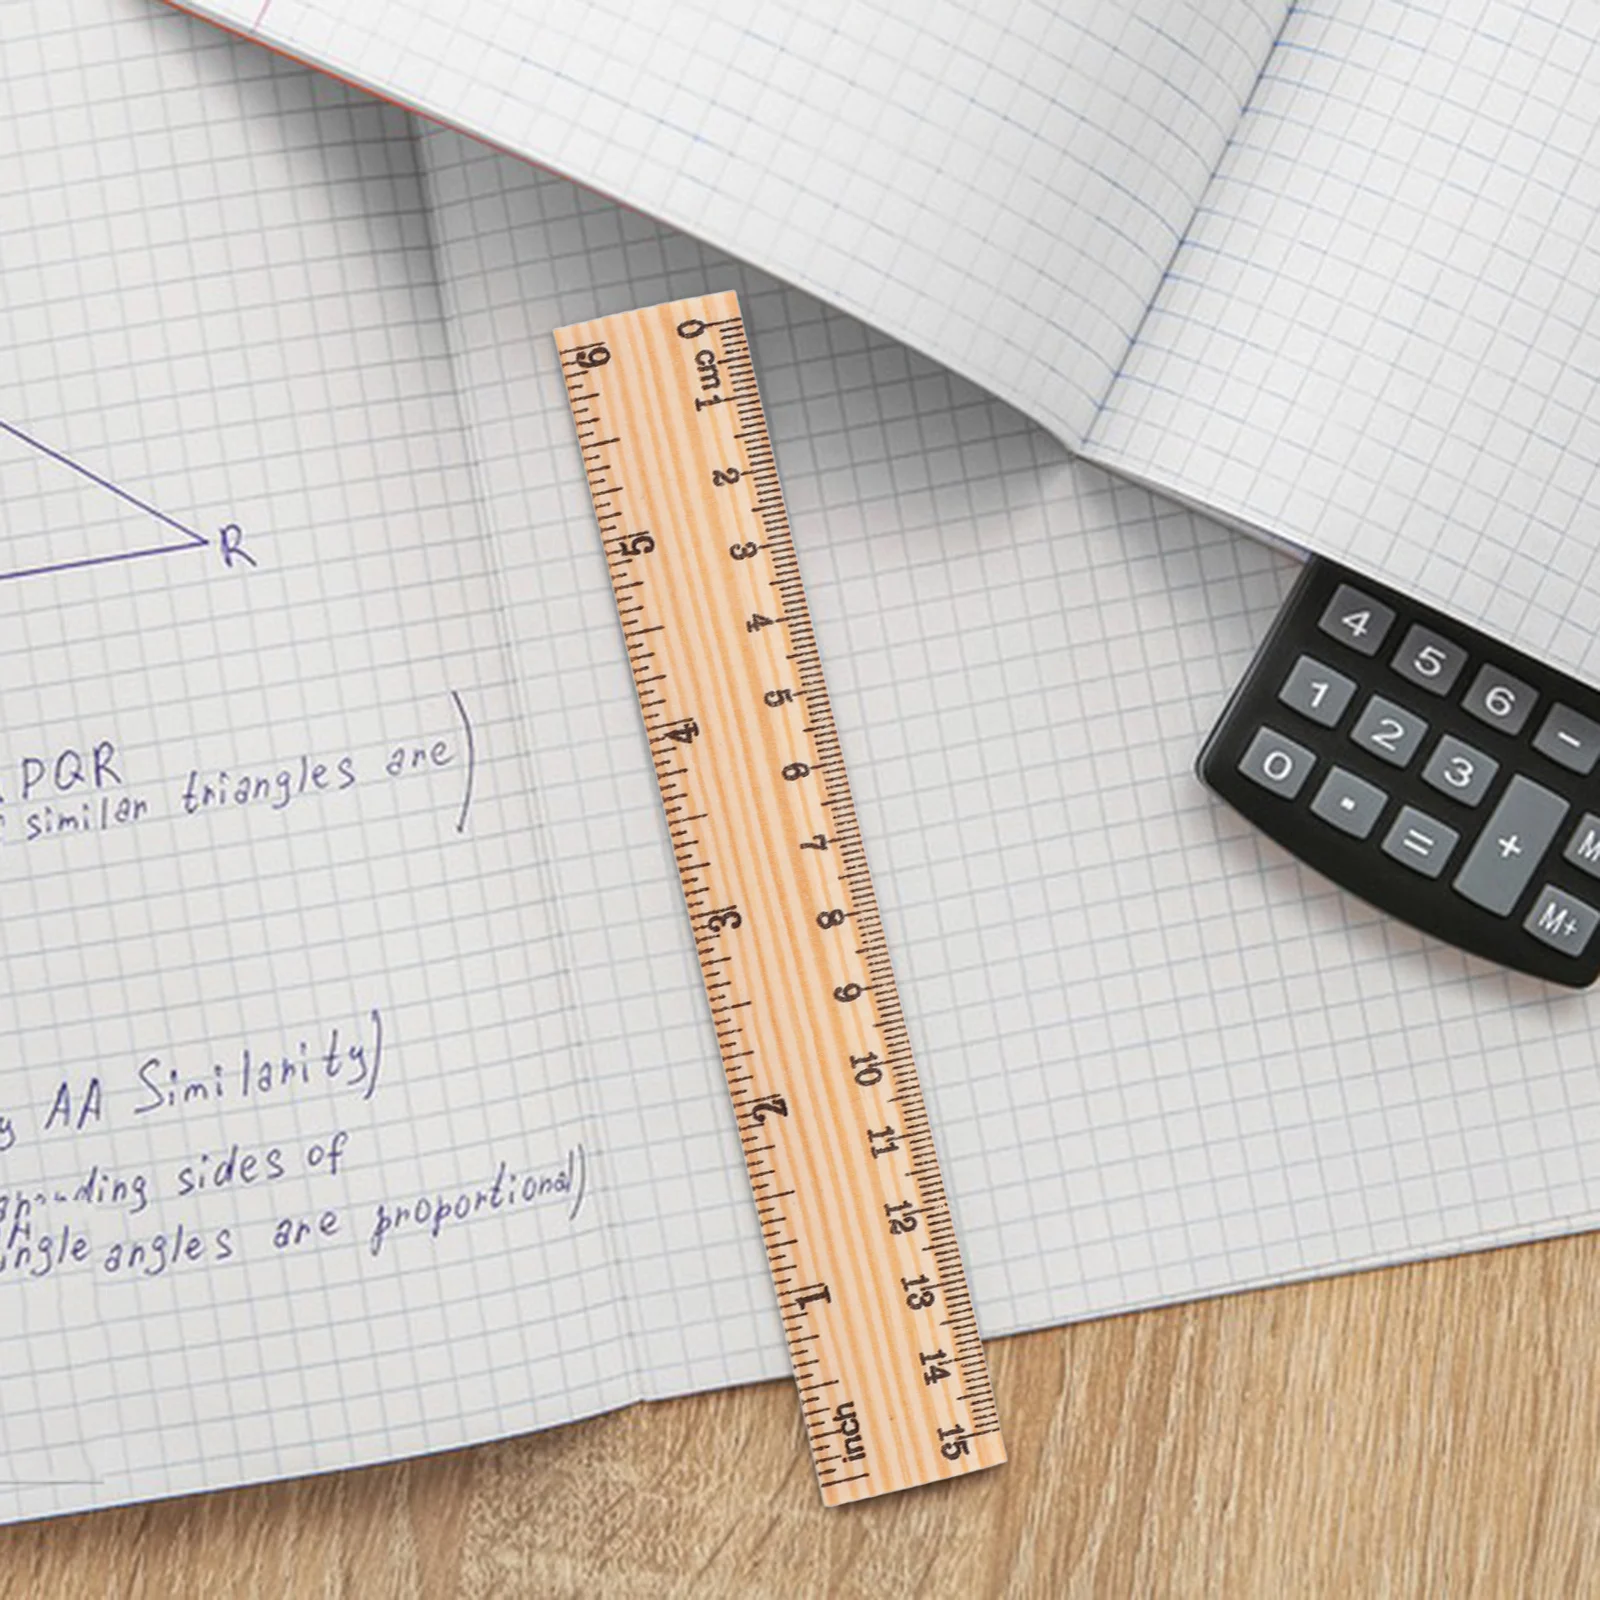 R
PQR
similar triangles are)
AA Similarity)
sides of
angles are proportional)
0 cm 1 2 3 4 5 6 7 8 9 10 11 12 13 14 15
6 5 4 3 2 1 inch
4 5 6 -
1 2 3
0 . = + M
M+